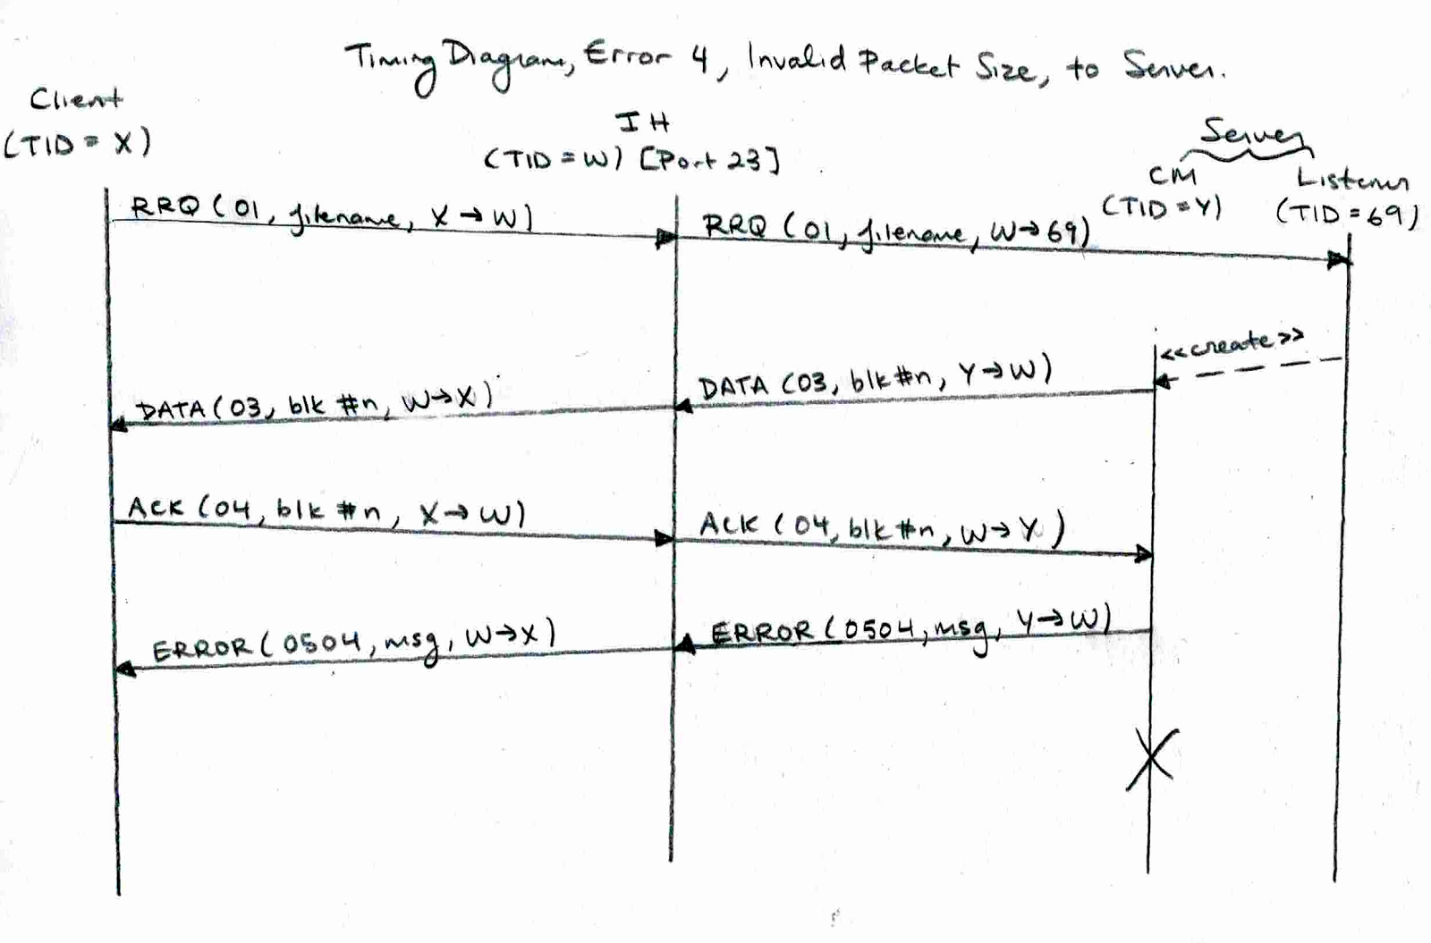 Timing Diagram, Error 4, Invalid Packet Size, to Server.
Client
(TID = X)
IH
(TID = W) [Port 23]
Server
CM
(TID = Y)
Listener
(TID = 69)
RRQ (01, filename, X → W)
RRQ (01, filename, W → 69)
<<create>>
DATA (03, blk #n, Y → W)
DATA (03, blk #n, W → X)
ACK (04, blk #n, X → W)
ACK (04, blk #n, W → Y)
ERROR (0504, msg, Y → W)
ERROR (0504, msg, W → X)